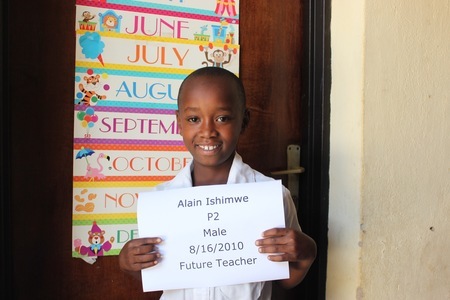 JUNE
JULY
AUGU
SEPTEM
OCTOBE
NOV
DE
Alain Ishimwe
P2
Male
8/16/2010
Future Teacher